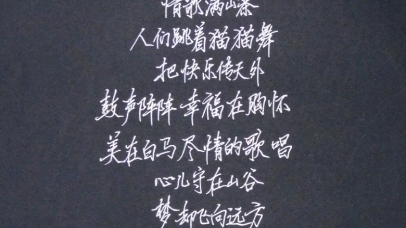 情歌满山寨
人们跳着猫猫舞
把快乐传天外
鼓声阵阵 幸福在胸怀
美在白马尽情的歌唱
心儿守在山谷
梦却飞向远方